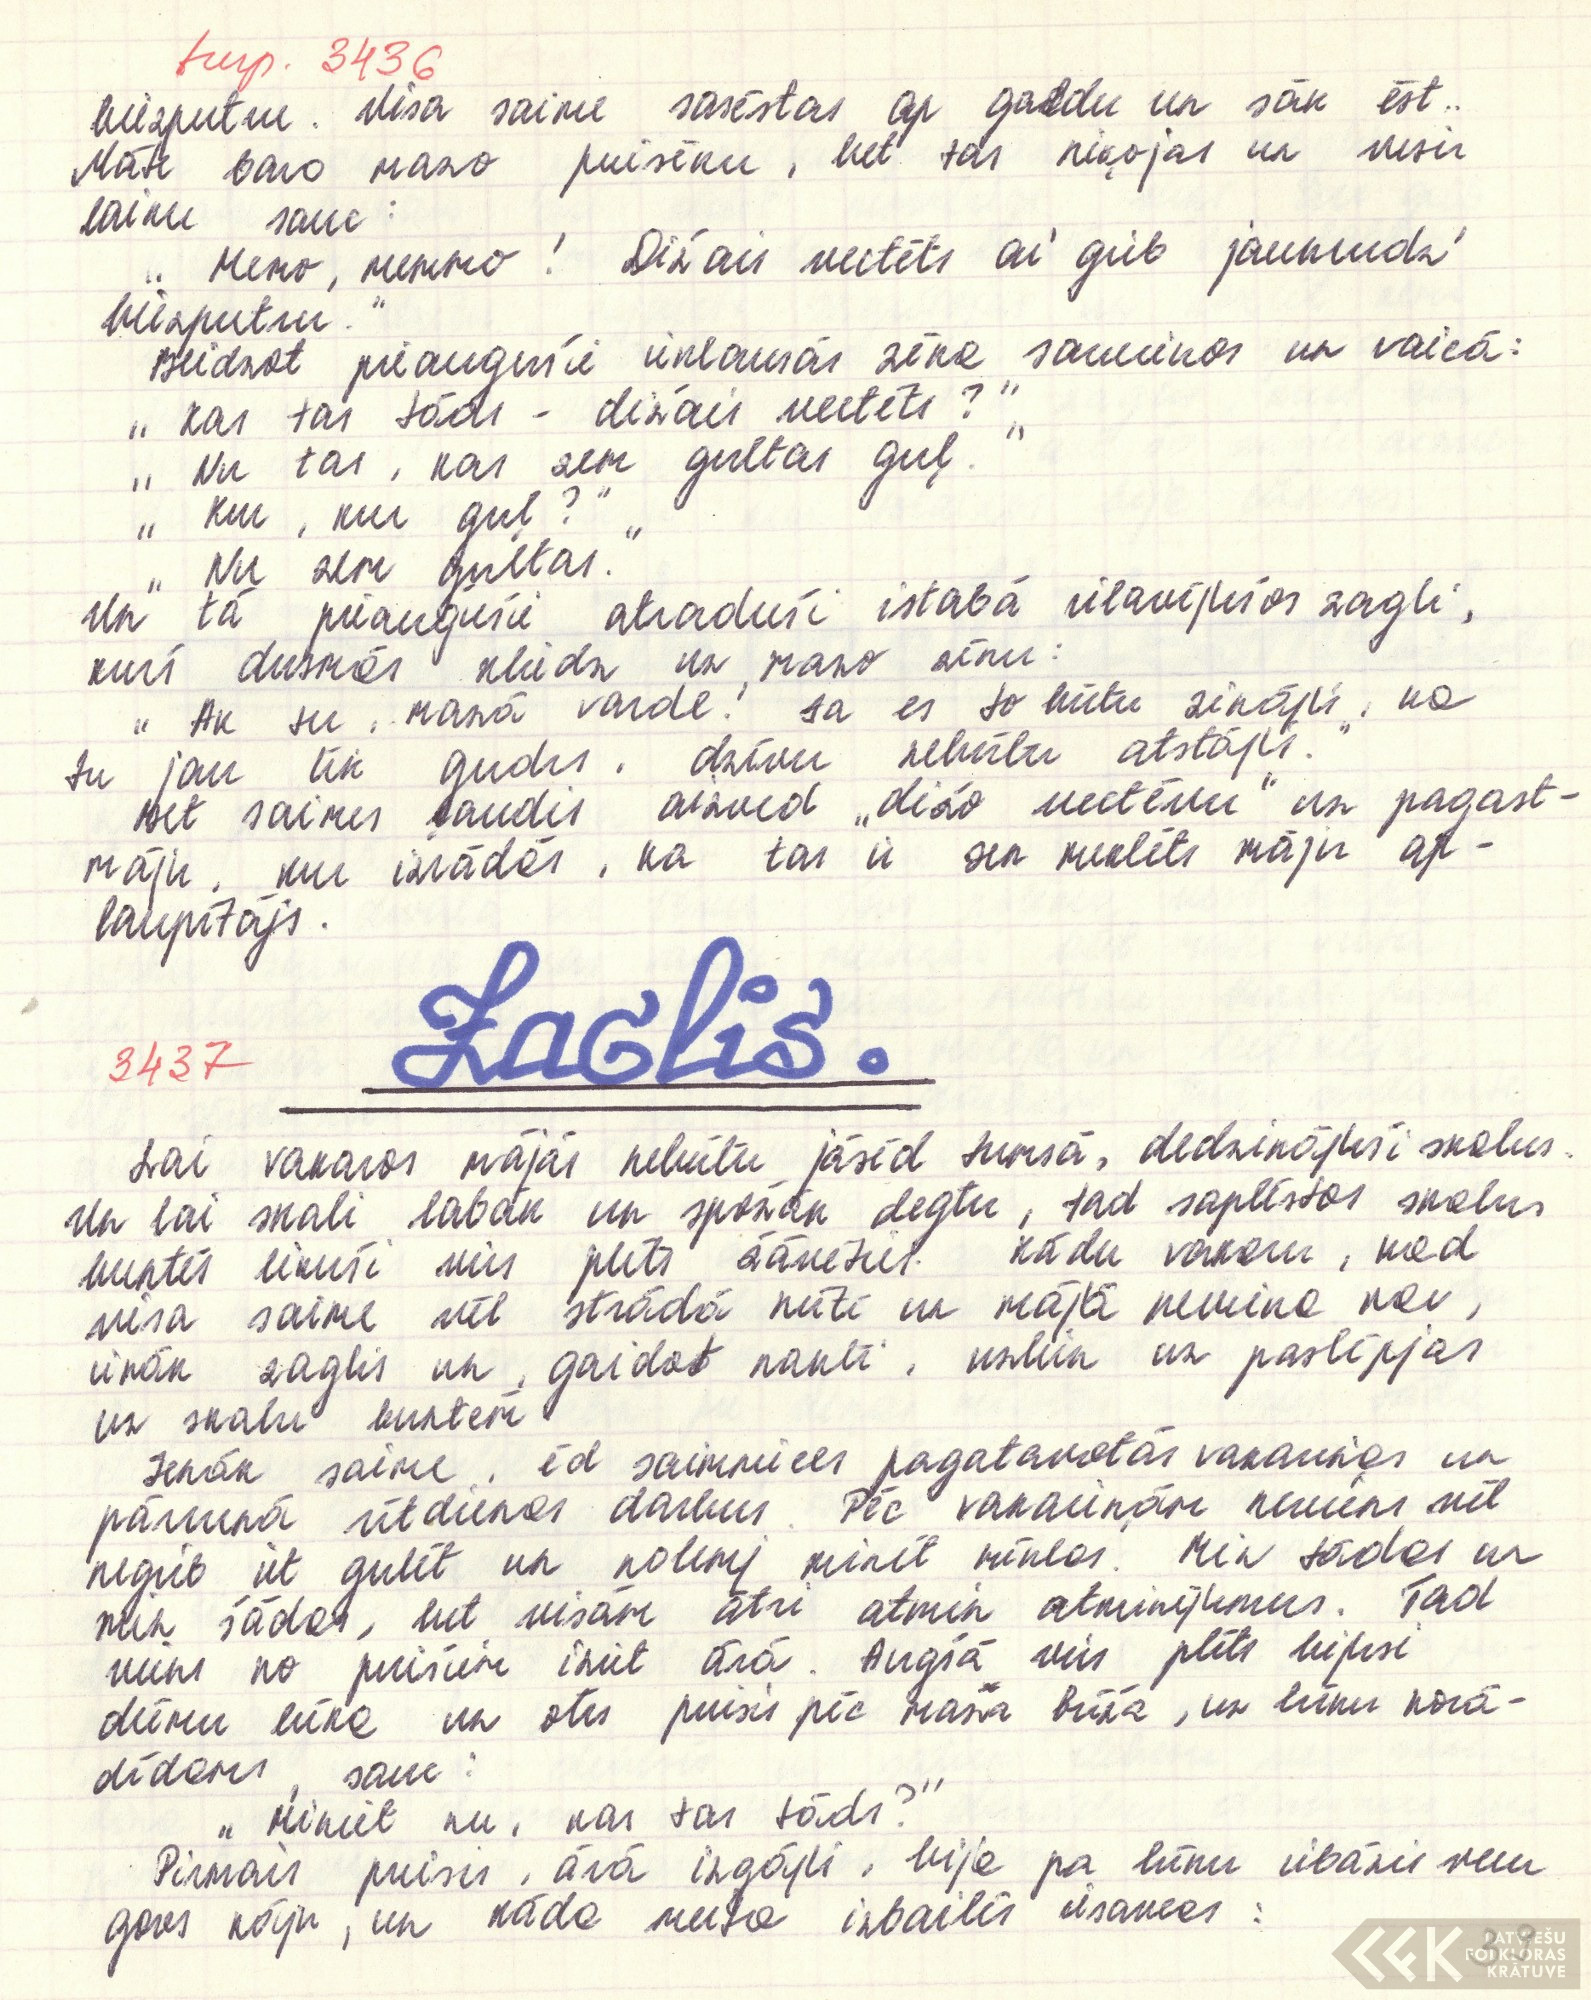 turp. 3436
biezputru. Visa saime sasēstas ap galdu un sāk ēst..
Māte baro mazo puisēnu, bet tas niķojas un visu
laiku sauc:
„Memo, memmo! Dižais vectēts ai' grib jaunmudz'
biezputru."
Beidzot pieaugušie ieklausās zēna saucienos un vaicā:
„Kas tas tāds - dižais vectēts?"
„Nu tas, kas zem gultas guļ."
„Kur, kur guļ?"
„Nu zem gultas."
Un tā pieaugušie atraduši istabā ielavījušos zagli,
kurš dusmās kliedz uz mazo zēnu:
„Ak tu, mazā varde! Ja es to būtu zinājis, ka
tu jau tik gudrs, dzīvu nebūtu atstājis."
Bet saimes ļaudis aizved „dižo vectēvu" uz pagast-
māju, kur izrādās, ka tas ir sen meklēts māju ap-
laupītājs.
3437 Zaglis.
Lai vakaros mājās nebūtu jāsēd tumsā, dedzinājuši skalus.
Un lai skali labāk un spožāk degtu, tad saplēstos skalus
buntēs likuši virs plīts žāvēties. Kādu vakaru, kad
visa saime vēl strādā kūtī un mājā neviena nav,
ienāk zaglis un, gaidot nakti, uzlien un paslēpjas
uz skalu buntēm
Ienāk saime, ēd saimnieces pagatavotās vakariņas un
pārrunā rītdienas darbus. Pēc vakariņām neviens vēl
negrib iet gulēt un nolemj minēt mīklas. Min tādas un
min šādas, bet visām ātri atmin atminējumus. Tad
viens no puišiem iziet ārā. Augšā virs plīts bijusi
dūmu lūka un otrs puisis pēc maza brīža, uz lūku norā-
dīdams, sauc:
„Miniet nu, kas tas tāds?"
Pirmais puisis, ārā izgājis, bija pa lūku iebāzis vecu
govs kāju, un kāda meita izbailēs iesaucas:
39
LATVIEŠU
FOLKLORAS
KRĀTUVE